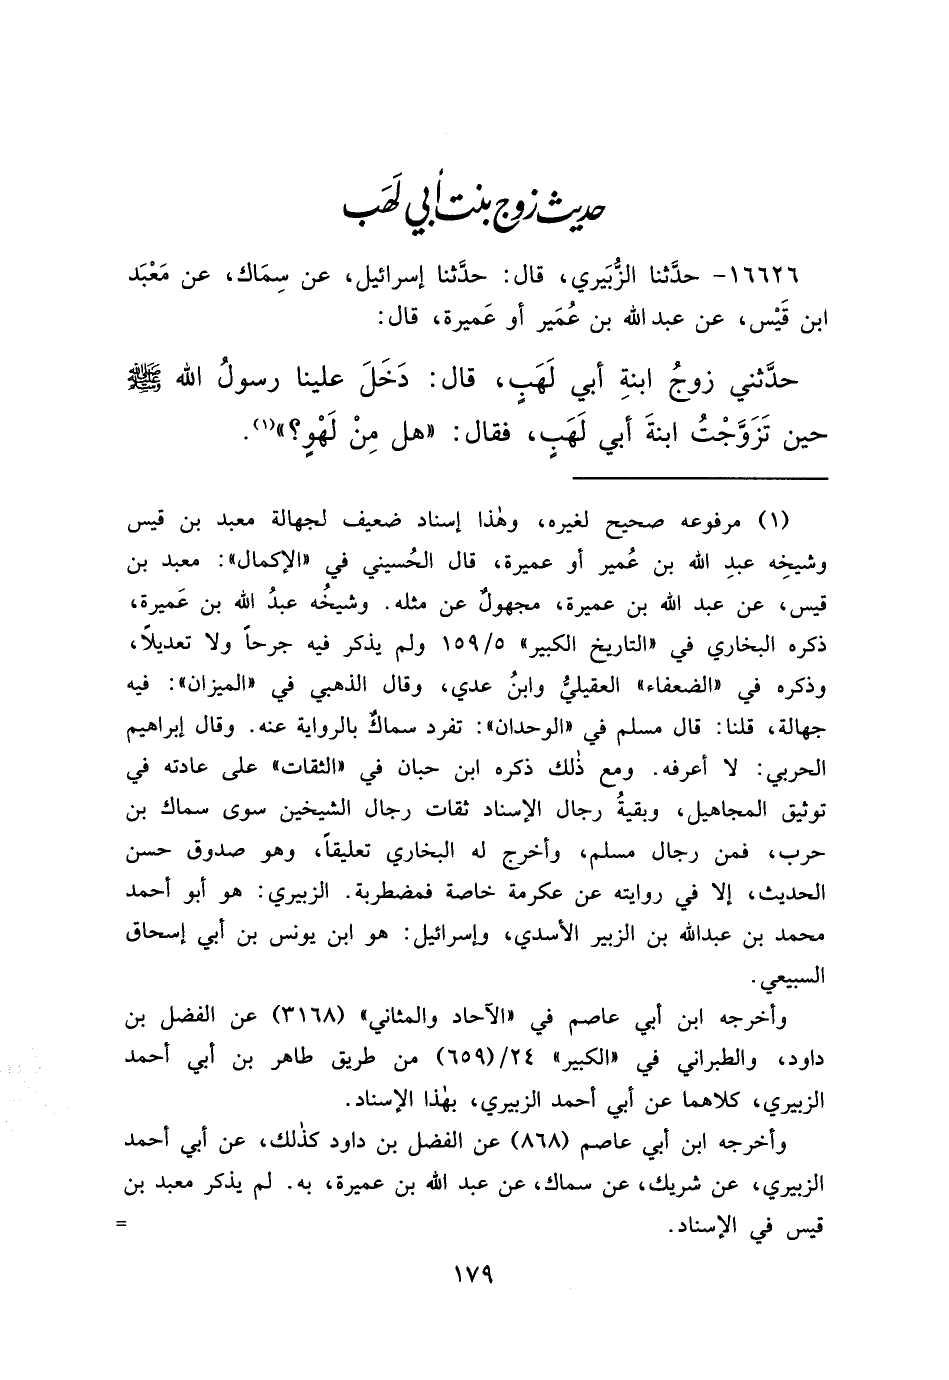 حديث زوج بنت أبي لَهَب
١٦٦٢٦- حدَّثنا الزُّبَيري، قال: حدَّثنا إسرائيل، عن سِمَاك، عن مَعْبَد
ابن قَيْس، عن عبد الله بن عُمَير أو عَميرة، قال:
حدَّثني زوجُ ابنةِ أبي لَهَبٍ، قال: دَخَلَ علينا رسولُ الله ﷺ
حين تَزَوَّجْتُ ابنةَ أبي لَهَبٍ، فقال: «هل مِنْ لَهْوٍ؟»(١).
(١) مرفوعه صحيح لغيره، وهٰذا إسناد ضعيف لجهالة معبد بن قيس
وشيخِه عبدِ الله بن عُمير أو عميرة، قال الحُسيني في «الإكمال»: معبد بن
قيس، عن عبد الله بن عميرة، مجهولٌ عن مثله. وشيخُه عبدُ الله بن عَميرة،
ذكره البخاري في «التاريخ الكبير» ١٥٩/٥ ولم يذكر فيه جرحاً ولا تعديلاً،
وذكره في «الضعفاء» العقيليُّ وابنُ عدي، وقال الذهبي في «الميزان»: فيه
جهالة، قلنا: قال مسلم في «الوحدان»: تفرد سماكٌ بالرواية عنه. وقال إبراهيم
الحربي: لا أعرفه. ومع ذٰلك ذكره ابن حبان في «الثقات» على عادته في
توثيق المجاهيل، وبقيةُ رجال الإسناد ثقات رجال الشيخين سوى سماك بن
حرب، فمن رجال مسلم، وأخرج له البخاري تعليقاً، وهو صدوق حسن
الحديث، إلا في روايته عن عكرمة خاصة فمضطربة. الزبيري: هو أبو أحمد
محمد بن عبدالله بن الزبير الأسدي، وإسرائيل: هو ابن يونس بن أبي إسحاق
السبيعي.
وأخرجه ابن أبي عاصم في «الآحاد والمثاني» (٣١٦٨) عن الفضل بن
داود، والطبراني في «الكبير» ٢٤/(٦٥٩) من طريق طاهر بن أبي أحمد
الزبيري، كلاهما عن أبي أحمد الزبيري، بهٰذا الإسناد.
وأخرجه ابن أبي عاصم (٨٦٨) عن الفضل بن داود كذٰلك، عن أبي أحمد
الزبيري، عن شريك، عن سماك، عن عبد الله بن عميرة، به. لم يذكر معبد بن
قيس في الإسناد. =
١٧٩